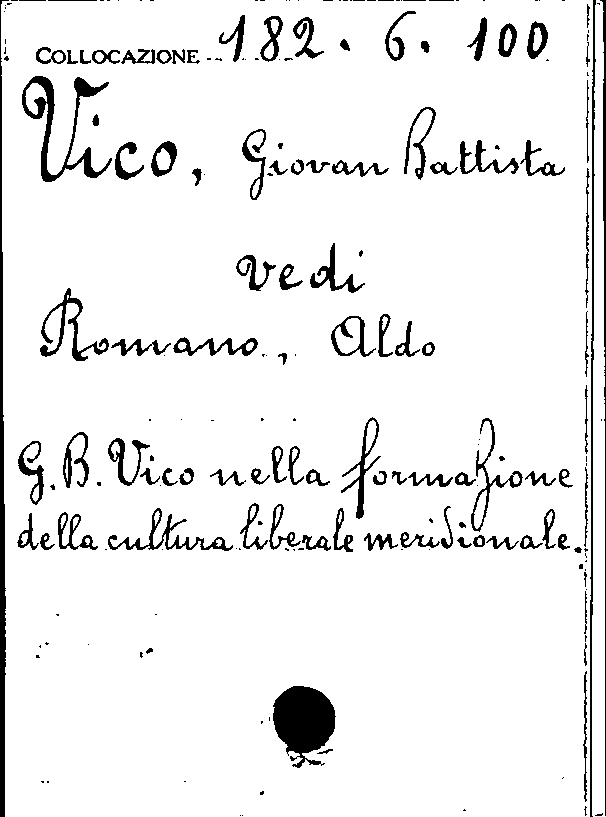 COLLOCAZIONE 182. 6. 100
Vico, Giovan Battista
vedi
Romano, Aldo
G. B. Vico nella formazione
della cultura liberale meridionale.